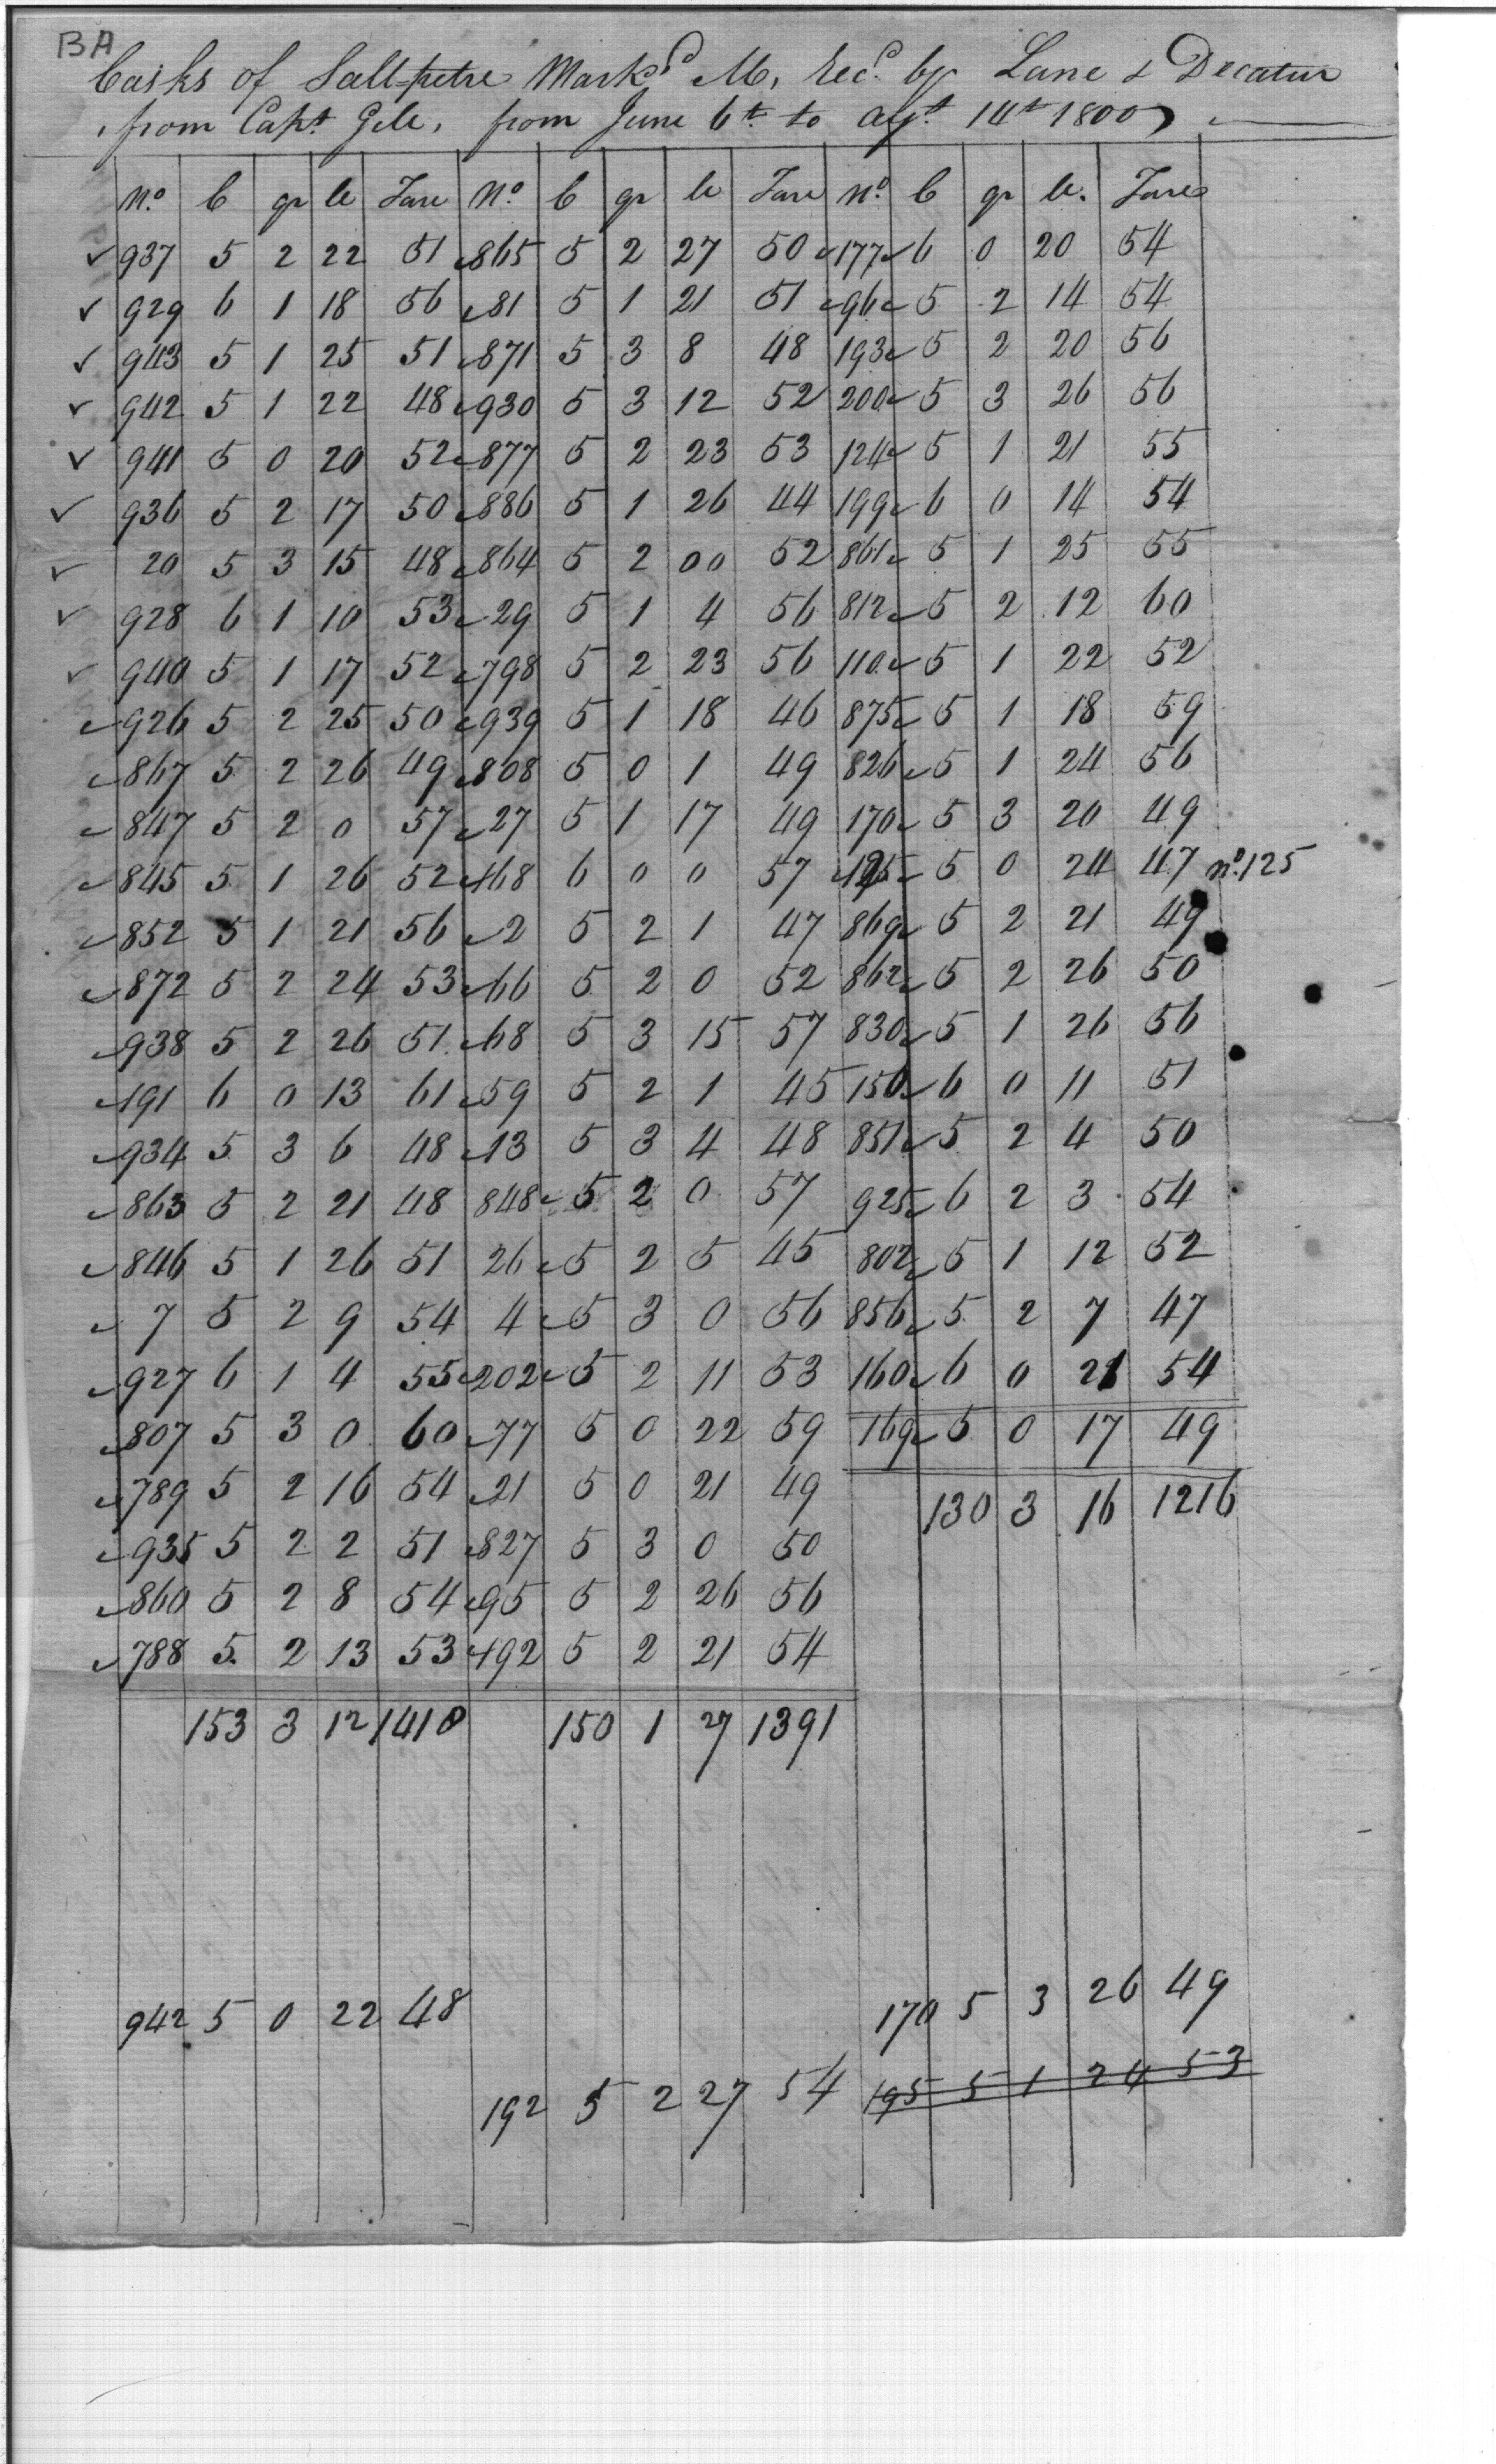 BA
Casks of Salt-petre Markd M, Recd. by Lane & Decatur
from Capt Gele, from June 6th to Agt. 14th 1800
No. C qr lb Tare No. C qr lb Tare No. C qr lb. Tare
✓ 937 5 2 22 51 ✓ 865 5 2 27 50 ✓ 177 ✓ 6 0 20 54
✓ 929 6 1 18 56 ✓ 81 5 1 21 51 ✓ 96 ✓ 5 2 14 54
✓ 943 5 1 25 51 ✓ 871 5 3 8 48 193 ✓ 5 2 20 56
✓ 942 5 1 22 48 ✓ 930 5 3 12 52 200 ✓ 5 3 26 56
✓ 941 5 0 20 52 ✓ 877 5 2 23 53 124 ✓ 5 1 21 55
✓ 936 5 2 17 50 ✓ 886 5 1 26 44 199 ✓ 6 0 14 54
✓ 20 5 3 15 48 ✓ 864 5 2 00 52 861 ✓ 5 1 25 55
✓ 928 6 1 10 53 ✓ 29 5 1 4 56 812 ✓ 5 2 12 60
✓ 940 5 1 17 52 ✓ 798 5 2 23 56 110 ✓ 5 1 22 52
✓ 926 5 2 25 50 ✓ 939 5 1 18 46 875 ✓ 5 1 18 59
✓ 867 5 2 26 49 ✓ 808 5 0 1 49 826 ✓ 5 1 24 56
✓ 847 5 2 0 57 ✓ 27 5 1 17 49 170 ✓ 5 3 20 49
✓ 845 5 1 26 52 ✓ 168 6 0 0 57 ✓ 125 ✓ 5 0 24 47 no. 125
✓ 852 5 1 21 56 ✓ 2 5 2 1 47 869 ✓ 5 2 21 49
✓ 872 5 2 24 53 ✓ 66 5 2 0 52 862 ✓ 5 2 26 50
✓ 938 5 2 26 51 ✓ 68 5 3 15 57 830 ✓ 5 1 26 56
✓ 191 6 0 13 61 ✓ 59 5 2 1 45 150 ✓ 6 0 11 51
✓ 934 5 3 6 48 ✓ 13 5 3 4 48 851 ✓ 5 2 4 50
✓ 863 5 2 21 48 848 ✓ 5 2 0 57 925 ✓ 6 2 3 54
✓ 846 5 1 26 51 26 ✓ 5 2 5 45 802 ✓ 5 1 12 52
✓ 7 5 2 9 54 4 ✓ 5 3 0 56 856 ✓ 5 2 7 47
✓ 927 6 1 4 55 ✓ 202 ✓ 5 2 11 53 160 ✓ 6 0 21 54
✓ 807 5 3 0 60 ✓ 77 5 0 22 59 169 ✓ 5 0 17 49
✓ 789 5 2 16 54 ✓ 21 5 0 21 49 130 3 16 1216
✓ 935 5 2 2 51 ✓ 827 5 3 0 50
✓ 860 5 2 8 54 ✓ 95 5 2 26 56
✓ 788 5 2 13 53 ✓ 192 5 2 21 54
153 3 12 1418 150 1 27 1391
942 5 0 22 48 170 5 3 26 49
192 5 2 27 54 195 5 1 24 53